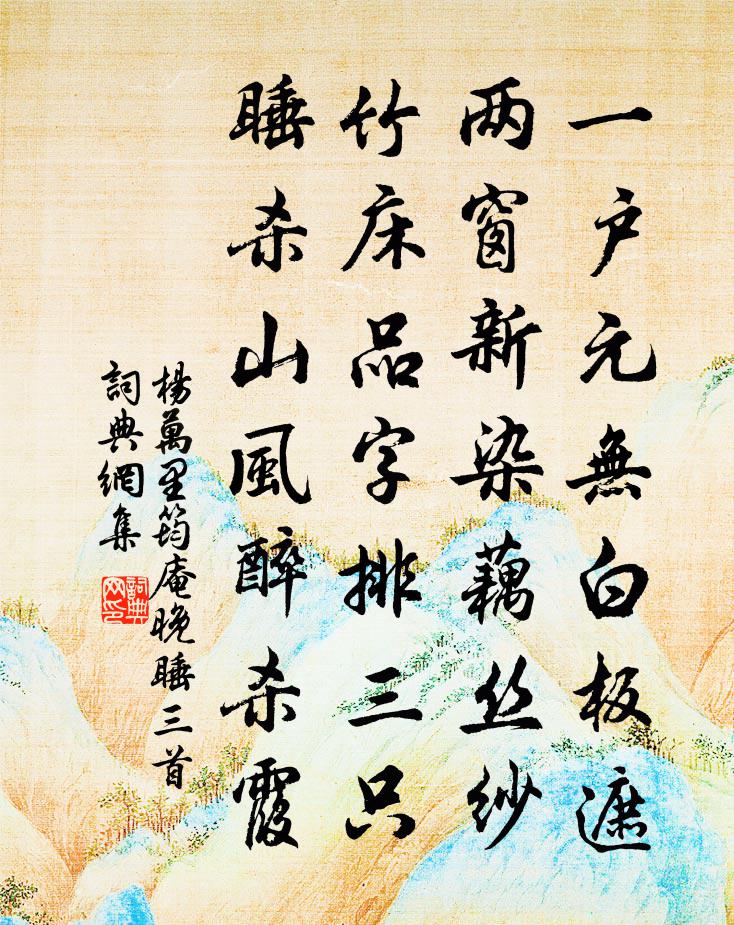 一户元無白板遮
两窗新染藕丝纱
竹床品字排三只
睡杀山風醉杀霞
楊萬里筠庵晚睡三首
詞典網集
詞典網印